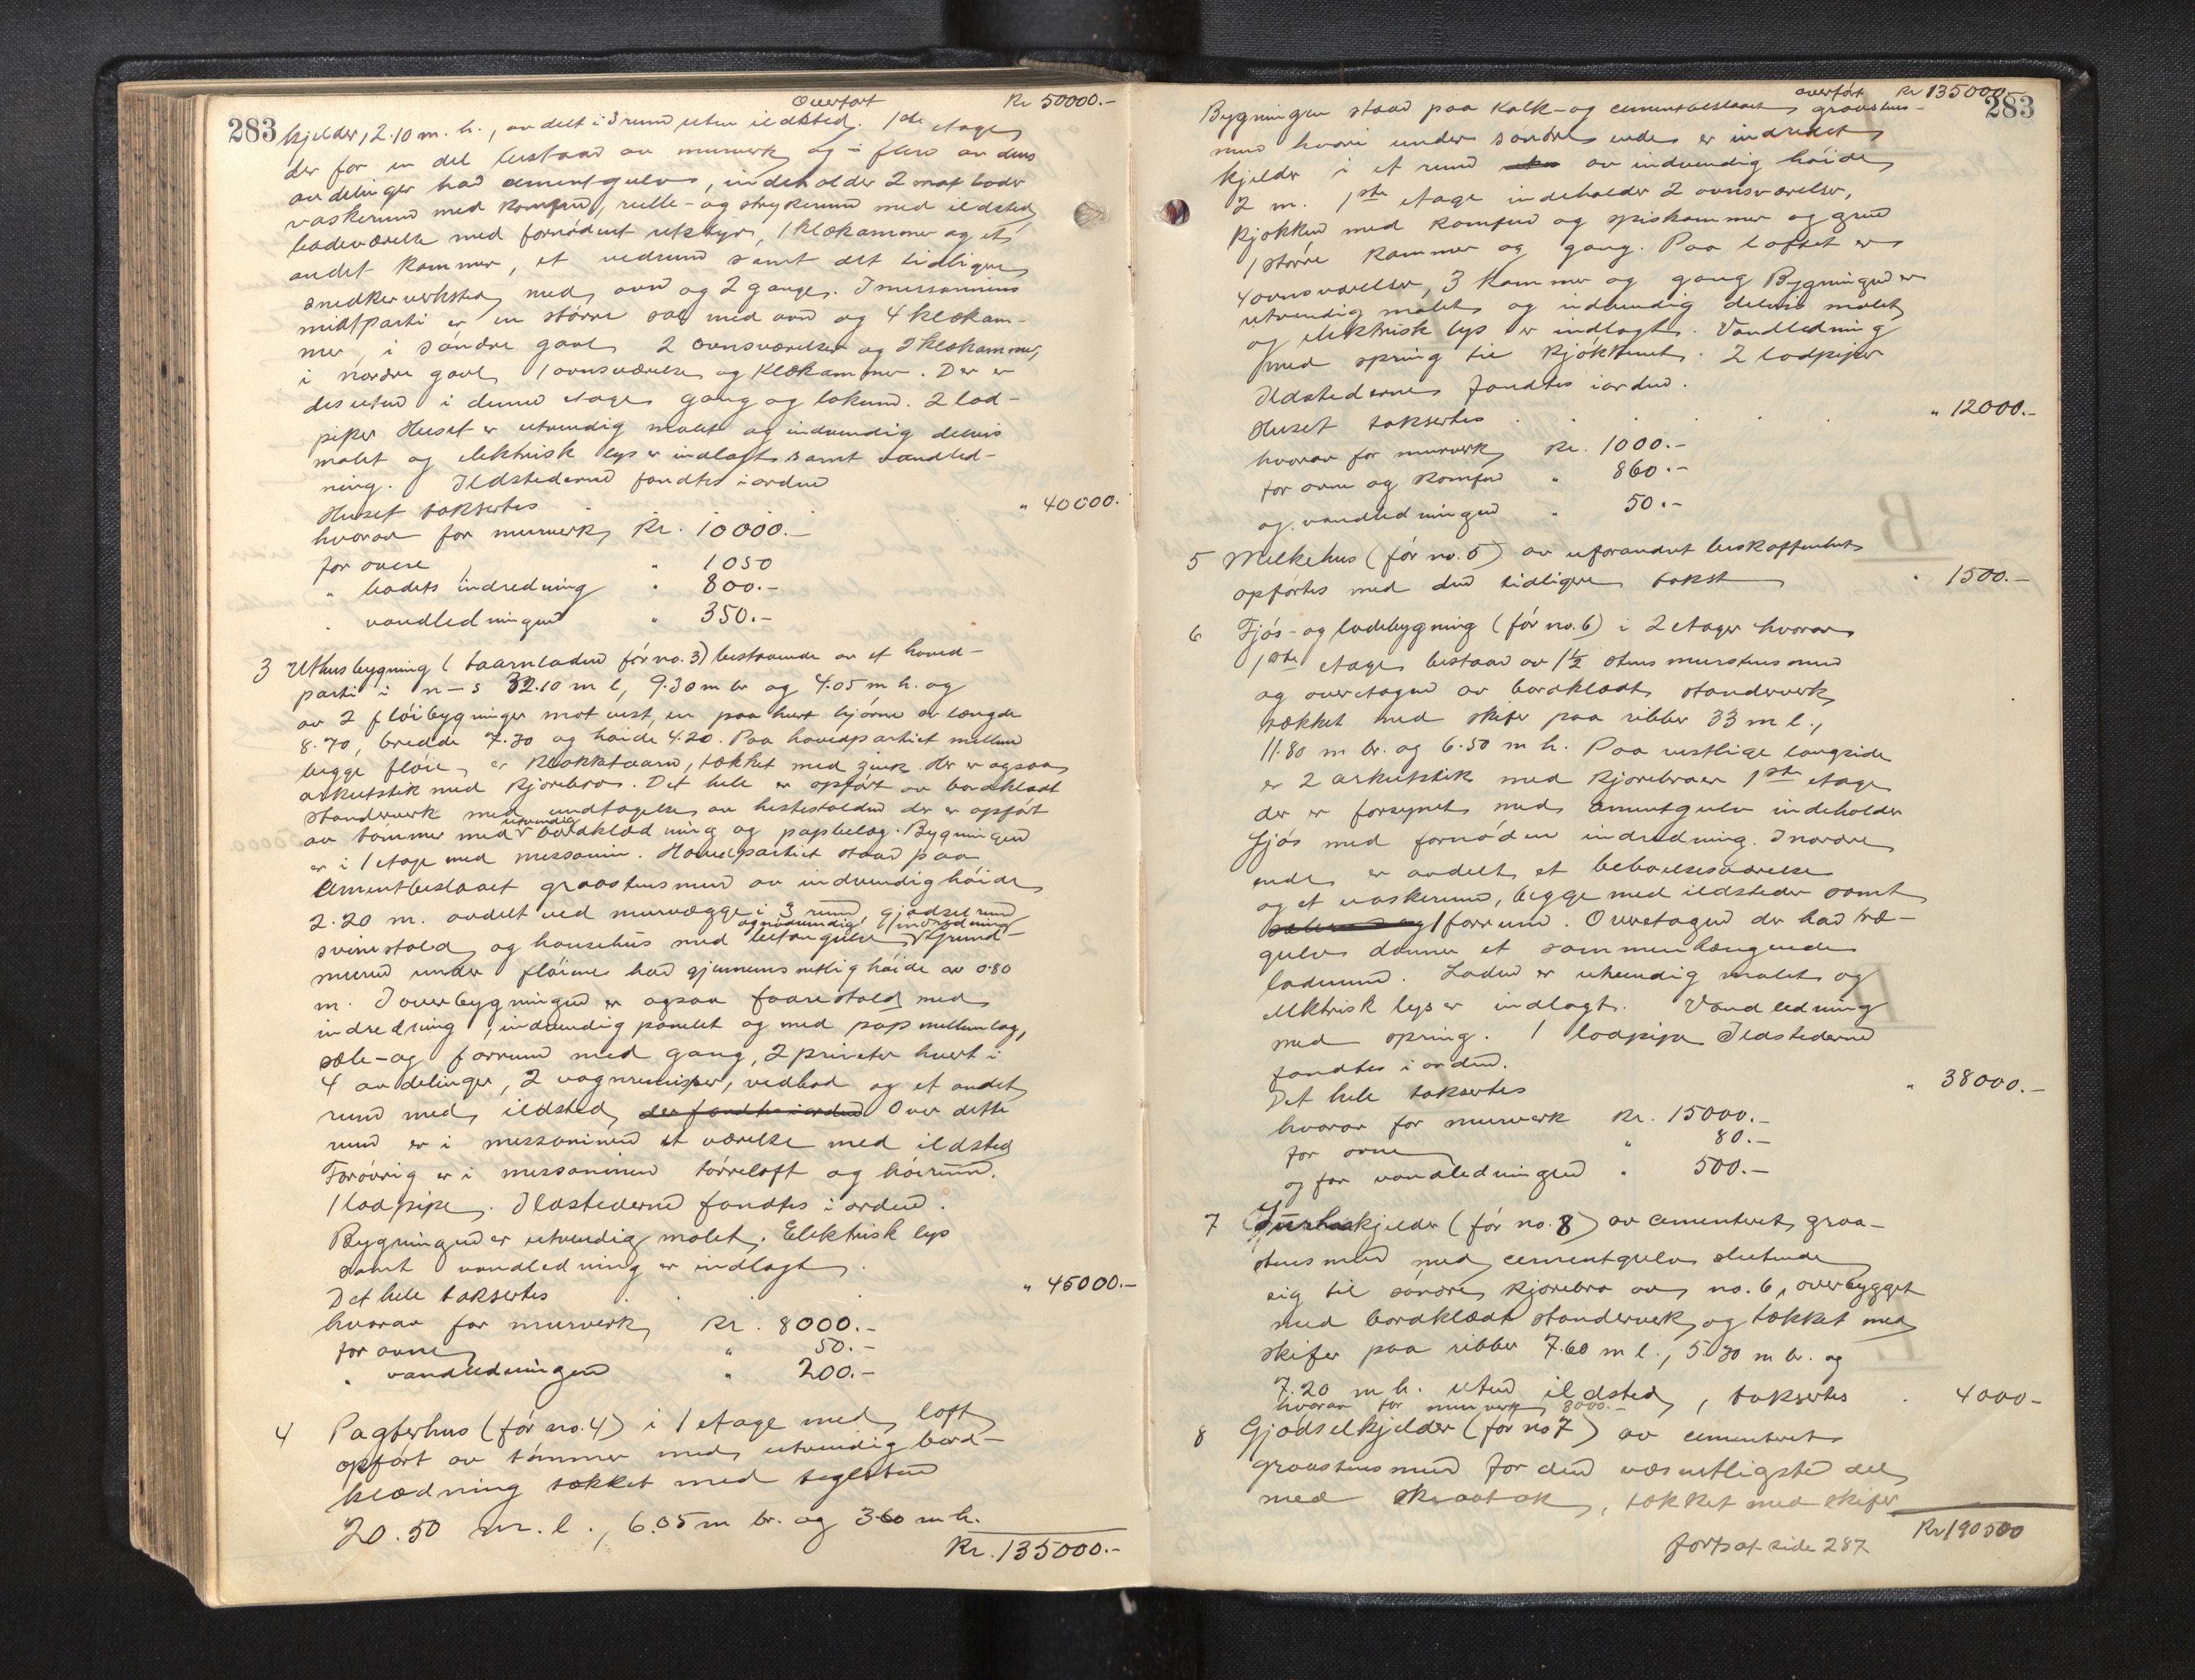 Overført Kr 50000.-
283 kjelder, 2.10 m. h., avdelt i 3 rum uten ildsted. 1ste etage
der for en del bestaar av murverk og i flere av dens
avdelinger har cementgulv, indeholder 2 matboder
vaskerum med komfur, rulle- og strykerum med ildsted,
badeværelse med fornødent utstyr, 1 klækammer og et
andet kammer, et vedrum samt det tidligere
snedkerverksted med ovn og 2 gange. I messaninens
midtparti er en større sal med ovn og 4 klækam-
mer, i søndre gavl 2 ovnsværelser og 2 klækammer,
i nordre gavl 1 ovnsværelse og klækammer. Der er
desuten i denne etage gang og lokum. 2 lod-
piper Huset er utvendig malet og indvendig delvis
malet og elektrisk lys er indlagt samt vandled-
ning. Ildstederne fandtes i orden
Huset taksertes " 40000.
hvorav for murverk Kr. 10000.-
for ovne " 1050
" badets indredning " 800.-
" vandledningen " 350.-
3 Uthusbygning (taarnladen før no. 3) bestaaende av et hoved-
parti i n-s 32.10 m l, 9.30 m br og 4.05 m h. og
av 2 fløibygninger mot vest, en paa hvert hjørne av længde
8.70, bredde 7.30 og høide 4.20. Paa hovedpartiet mellem
begge fløie er klokketaarn, tækket med zink. Her er ogsaa
arkutstik med kjørebro. Det hele er opført av bordklædt
standerverk med undtagelse av hestestalden der er opført
av tømmer med utvendig bordklædning og papbelæg. Bygningen
er i 1 etage med messanin. Hovedpartiet staar paa
cementbeslaaet graastensmur av indvendig høide
2.20 m. avdelt ved murvægge i 3 rum gjødselrum
svinestald og hønsehus med betongulv og nødvendig indredning Grund-
muren under fløiene har gjennemsnitlig høide av 0.80
m. I overbygningen er ogsaa faarestald med
indredning, indvendig panelet og med pap mellemlag,
sæle- og forrum med gang, 2 priveter hvert i
4 avdelinger, 2 vognremisser, vedbod og et andet
rum med ildsted der fandtes i orden Over dette
rum er i messaninen et værelse med ildsted
Forøvrig er i messaninen tørreloft og høirum.
1 lodpipe. Ildstederne fandtes i orden.
Bygningen er utvendig malet. Elektrisk lys
samt vandledning er indlagt.
Det hele taksertes " 45000.-
hvorav for murverk Kr. 8000.-
for ovne " 50.-
" vandledningen " 200.-
4 Pagterhus (før no. 4) i 1 etage med loft
opført av tømmer med utvendig bord-
klædning tækket med teglsten
20.50 m. l., 6.05 m br. og 3.60 m h.
Kr. 135000.-
overført Kr 135000.-
283
Bygningen staar paa kalk- og cementbeslaaet graastens-
mur hvori under søndre ende er indredet
kjelder i et rum av indvendig høide
2 m. 1ste etage indeholder 2 ovnsværelser,
kjøkken med komfur og spiskammer og grue
1 større kammer og gang. Paa loftet er
4 ovnsværelser, 3 kammer og gang Bygningen er
utvendig malet og indvendig delvis malet
og elektrisk lys er indlagt. Vandledning
med spring til kjøkkenet. 2 lodpiper
Ildstederne fandtes i orden.
Huset taksertes " 12000.-
hvorav for murverk Kr. 1000.-
for ovne og komfur " 860.-
og vandledningen " 50.-
5 Melkehus (før no. 5) av uforandret beskaffenhet
opførtes med den tidligere takst " 1500.-
6 Fjøs- og ladebygning (før no. 6) i 2 etager hvorav
1ste etage bestaar av 1½ stens murstensmur
og overetagen av bordklædt standerverk
tækket med skifer paa ribber 33 m l.,
11.80 m br. og 6.50 m h. Paa vestlige langside
er 2 arkutstik med kjørebroer 1ste etage
der er forsynet med cementgulv indeholder
fjøs med fornøden indredning. I nordre
ende er avdelt et beboelsesværelse
og et vaskerum, begge med ildsteder samt
1 forrum. Overetagen der har træ-
gulv danner et sammenhængende
laderum. Laden er utvendig malet og
elektrisk lys er indlagt. Vandledning
med spring. 1 lodpipe Ildstederne
fandtes i orden.
Det hele taksertes " 38000.-
hvorav for murverk Kr. 15000.-
for ovne " 80.-
og for vandledningen " 500.-
7 kjelder (før no. 8) av cementeret graa-
stensmur med cementgulv sluttende
sig til søndre kjørebro av no. 6, overbygget
med bordklædt standerverk og tækket med
skifer paa ribber 7.60 m l., 5.30 m br. og
7.20 m h. uten ildsted, taksertes " 4000-
hvorav for murverk 3000.-
8 Gjødselkjelder (før no 7) av cementeret
graastensmur for den væsentligste del
med skraatak, tækket med skifer
Kr 190500
fortsat side 287